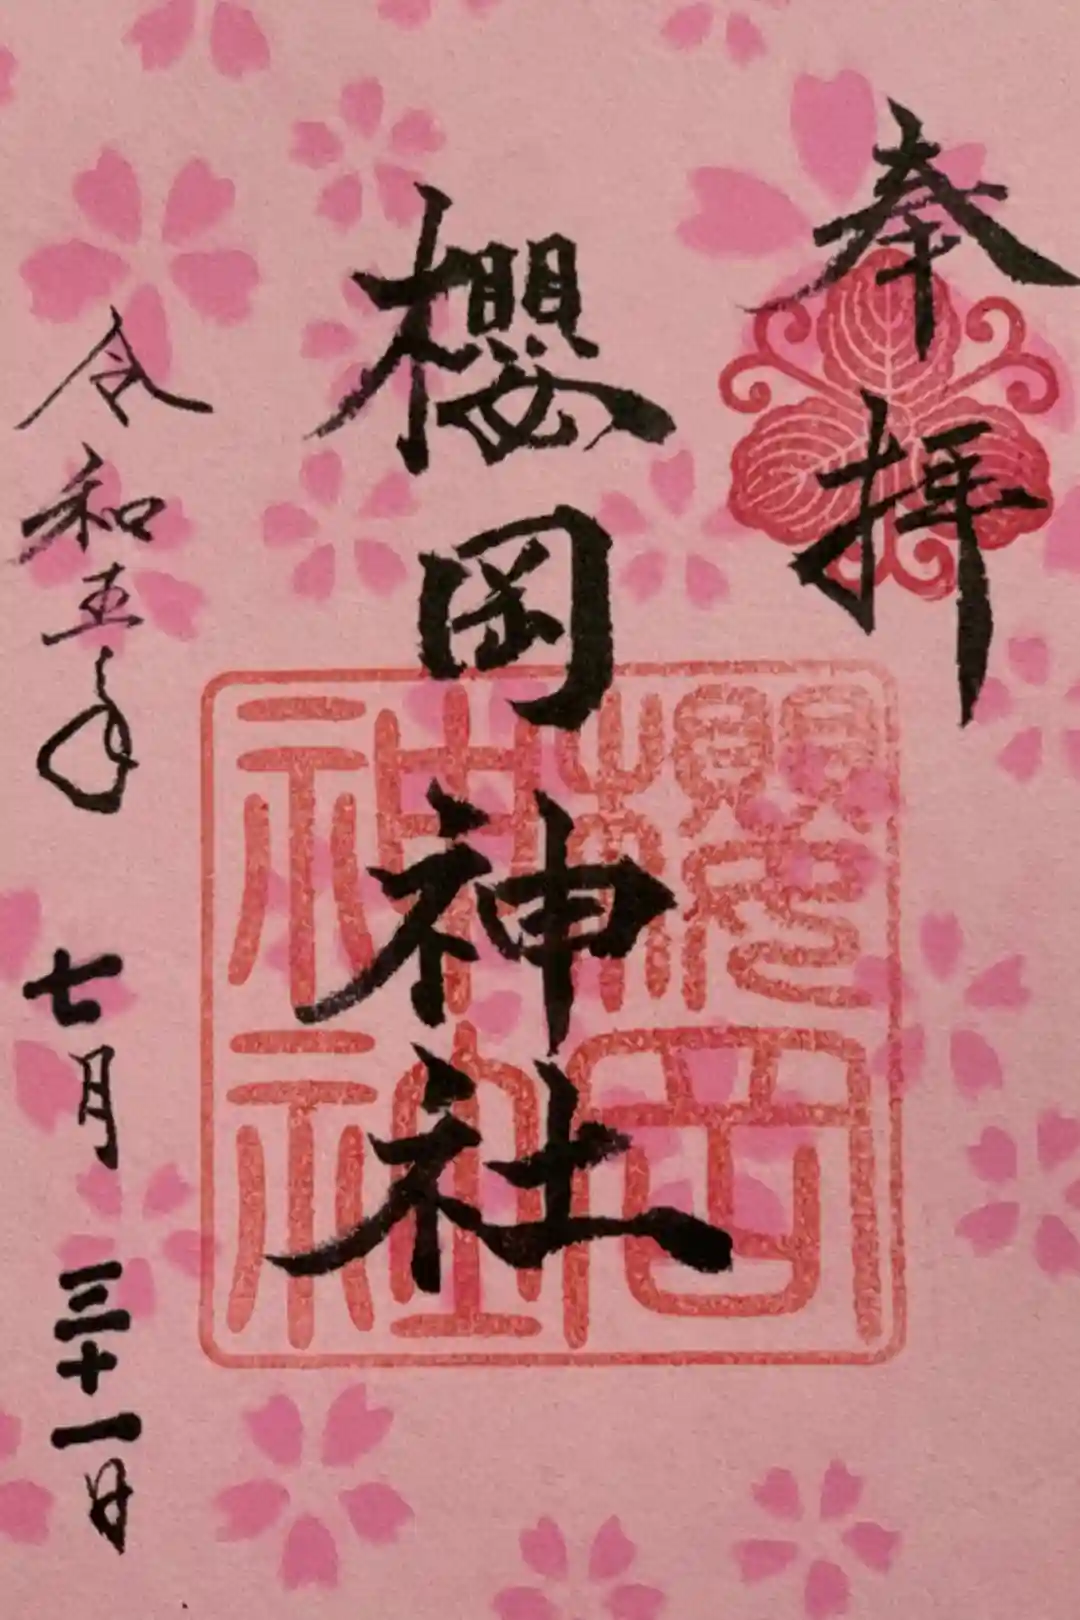 奉拝
櫻岡神社
櫻岡
神社
令和五年
七月
三十一日